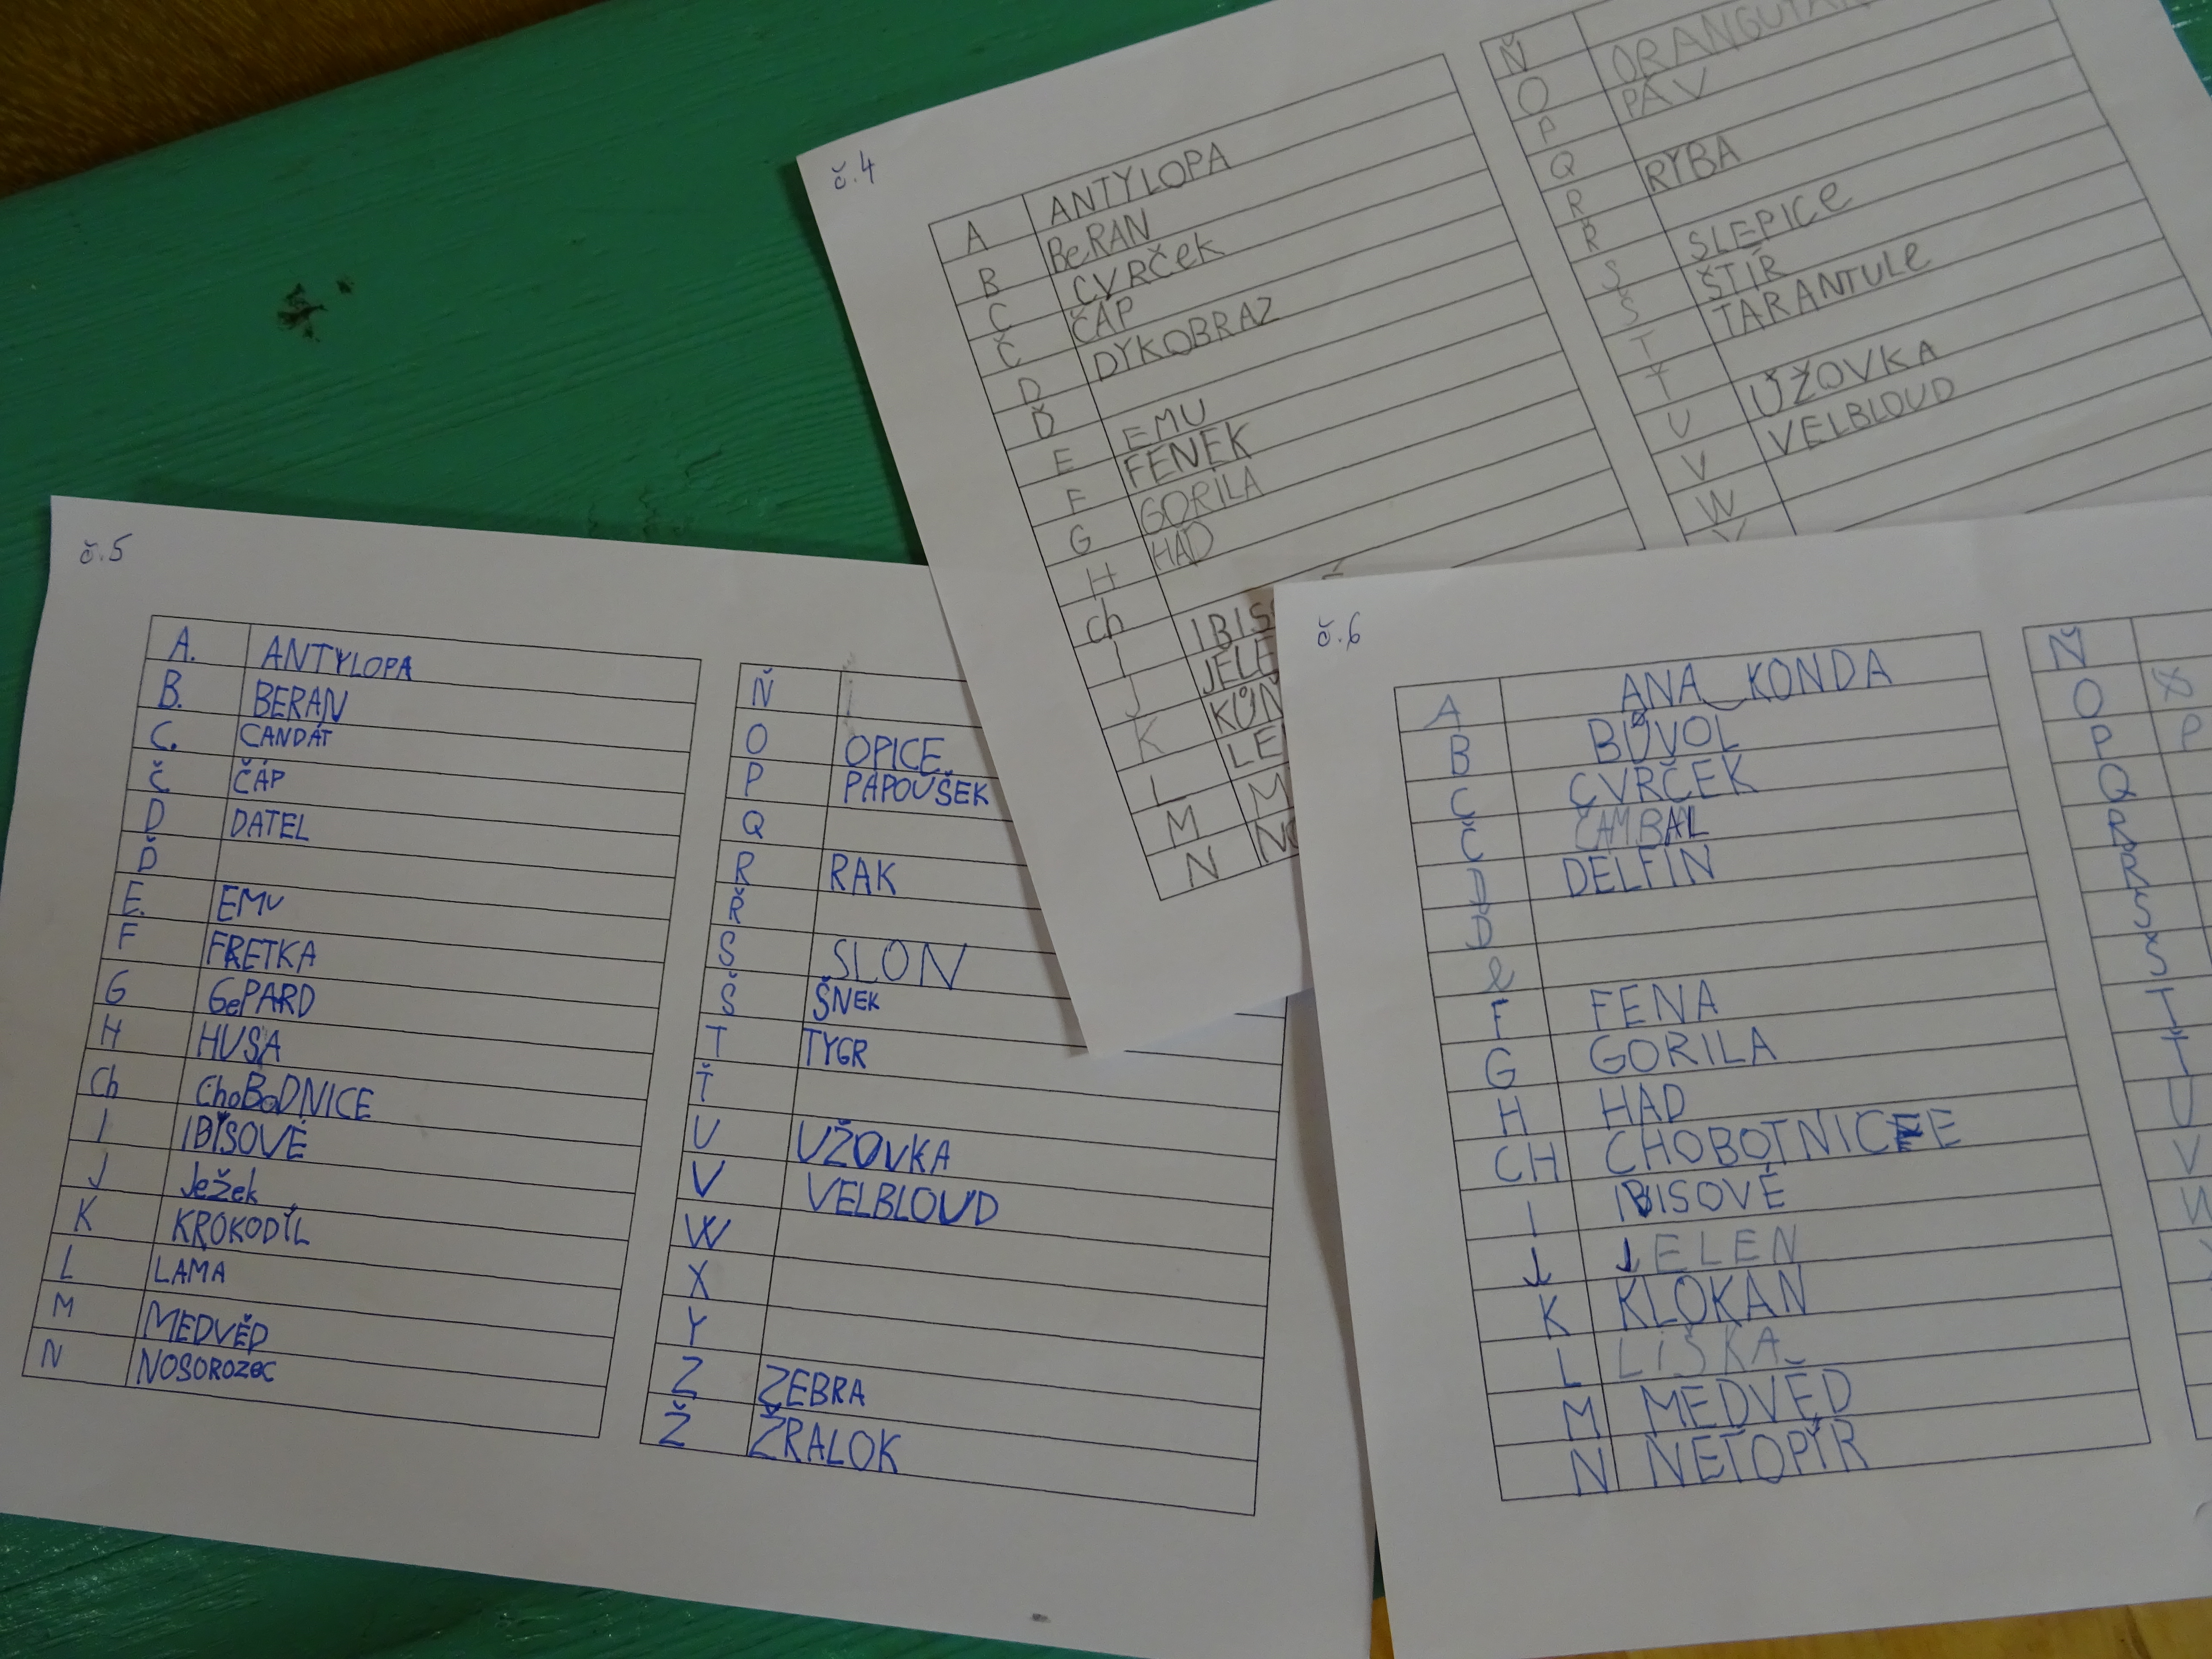 č.4
A ANTYLOPA
B BeRAN
C CVRČek
Č ČÁP
D DYKOBRAZ
Ď
E EMU
F FENEK
G GORILA
H HAD
Ch
I IBIS
J JELE
K KŮN
L LE
M M
N NO
Ň
O ORANGUTAN
P PÁV
Q
R RYBA
Ř
S SLEPICe
Š ŠTÍR
T TARANTULe
Ť
U UŽOVKA
V VELBLOUD
W
č.5
A. ANTYLOPA
B. BERAN
C. CANDÁT
Č ČÁP
D DATEL
Ď
E. EMU
F FRETKA
G GePARD
H HUSA
Ch ChoBoDNICE
I IBISOVÉ
J Ježek
K KROKODÍL
L LAMA
M MEDVĚD
N NOSOROZEC
Ň
O OPICE
P PAPOUŠEK
Q
R RAK
Ř
S SLON
Š ŠNEK
T TYGR
Ť
U UŽOVKA
V VELBLOUD
W
X
Y
Z ZEBRA
Ž ŽRALOK
č.6
A ANA KONDA
B BŮVOL
C CVRČEK
Č ČAMBAL
D DELFIN
Ď
e
F FENA
G GORILA
H HAD
CH CHOBOTNICE
I IBISOVÉ
J JELEN
K KLOKAN
L LIŠKA
M MEDVĚD
N NETOPÍR
Ň
O
P P
Q
R
Ř
S
Š
T
Ť
U
V
W